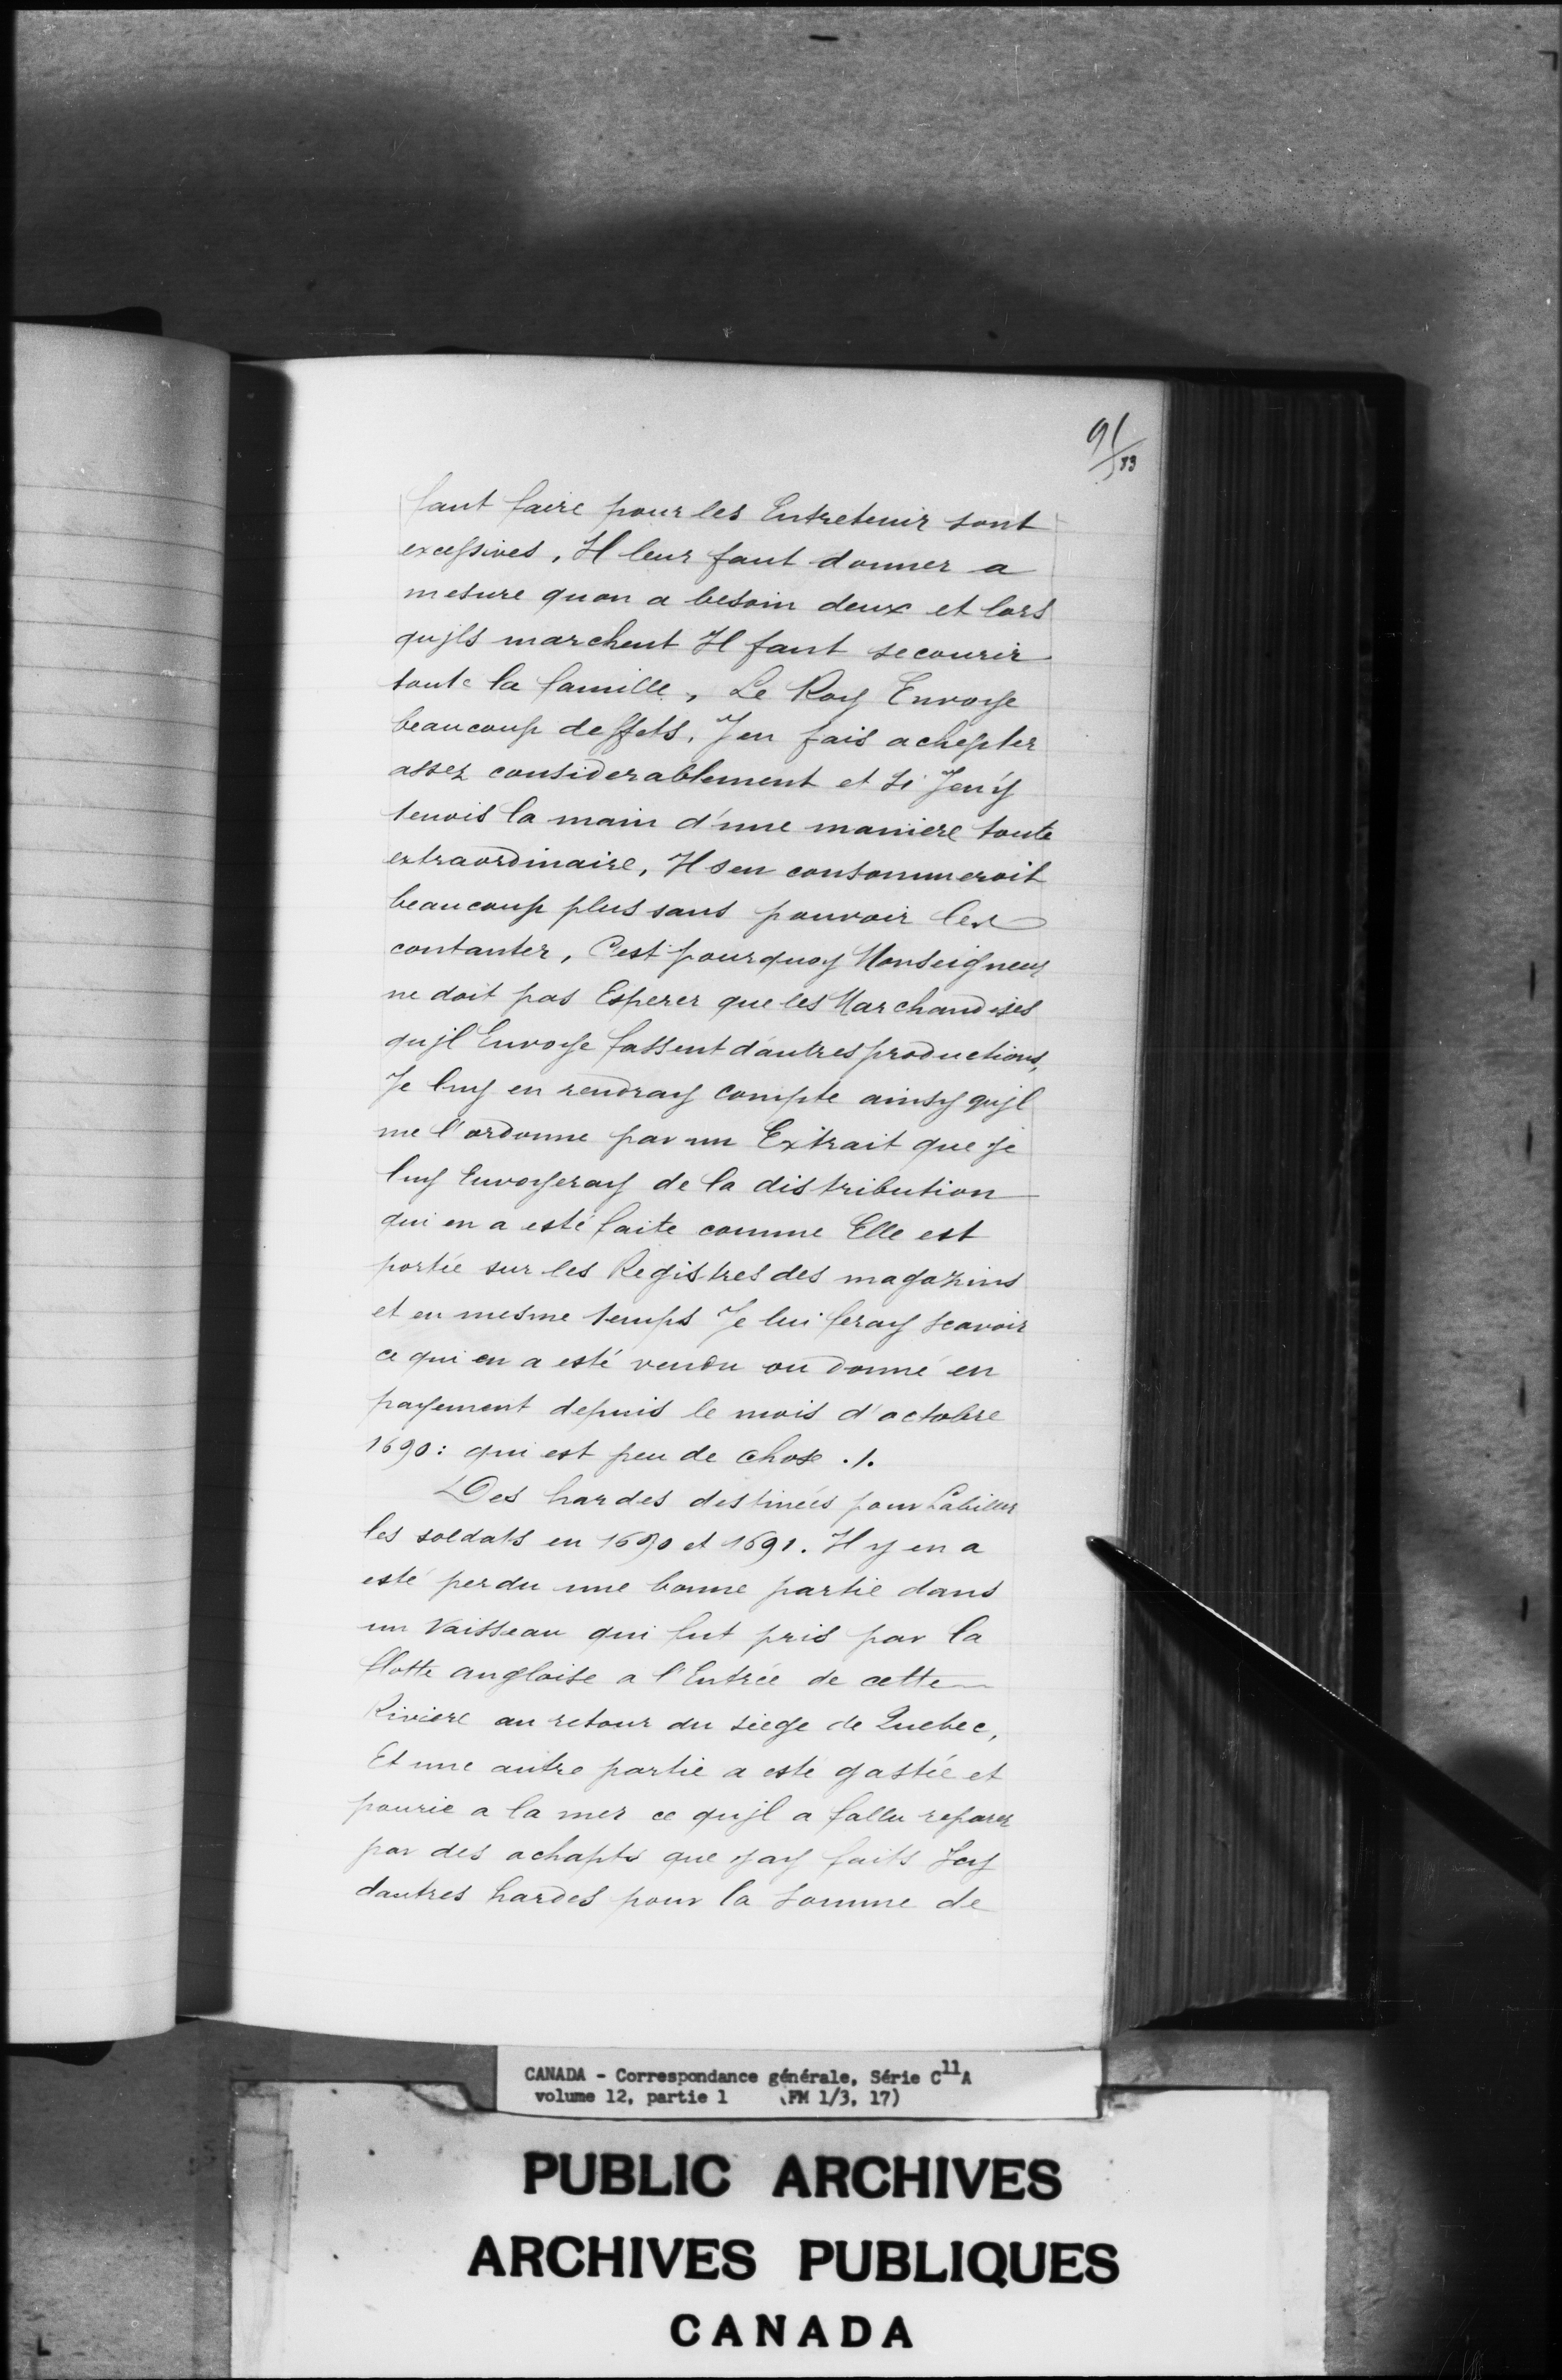 91
/83
faut faire pour les Entretenir sont
excessives, Il leur faut donner a
mesure quon a besoin deux et lors
qujls marchent Il faut secourir
toute la famille, Le Roy Envoye
beaucoup deffets, J en fais achepter
assez considerablement et si Jen'y
tenois la main d'une maniere toute
extraordinaire, Il sen consommeroit
beaucoup plus sans pouvoir les
contanter, C'est pourquoy Monseigneur
ne doit pas Esperer que les Marchandises
qujl Envoye fassent d'autres productions,
Je luy en rendray compte ainsy qujl
me l'ordonne par un Extrait que je
luy Envoyeray de la distribution
qui en a esté faite comme Elle est
portée sur les Registres des magazins
et en mesme temps Je lui feray scavoir
ce qui en a esté vendu ou donné en
payement depuis le mois d'octobre
1690: qui est peu de chose ./.
Des hardes destinées pour habiller
les soldats en 1690 et 1691. Il y en a
esté perdu une bonne partie dans
un Vaisseau qui fut pris par la
flotte angloise a l'Entrée de cette
Riviere au retour du siege de Quebec,
Et une autre partie a esté gastée et
pourie a la mer ce qujl a fallu reparer
par des achapts que jay faits Jcy
dautres hardes pour la somme de
CANADA - Correspondance générale, Série C11A
volume 12, partie 1 (FM 1/3, 17)
PUBLIC ARCHIVES
ARCHIVES PUBLIQUES
CANADA